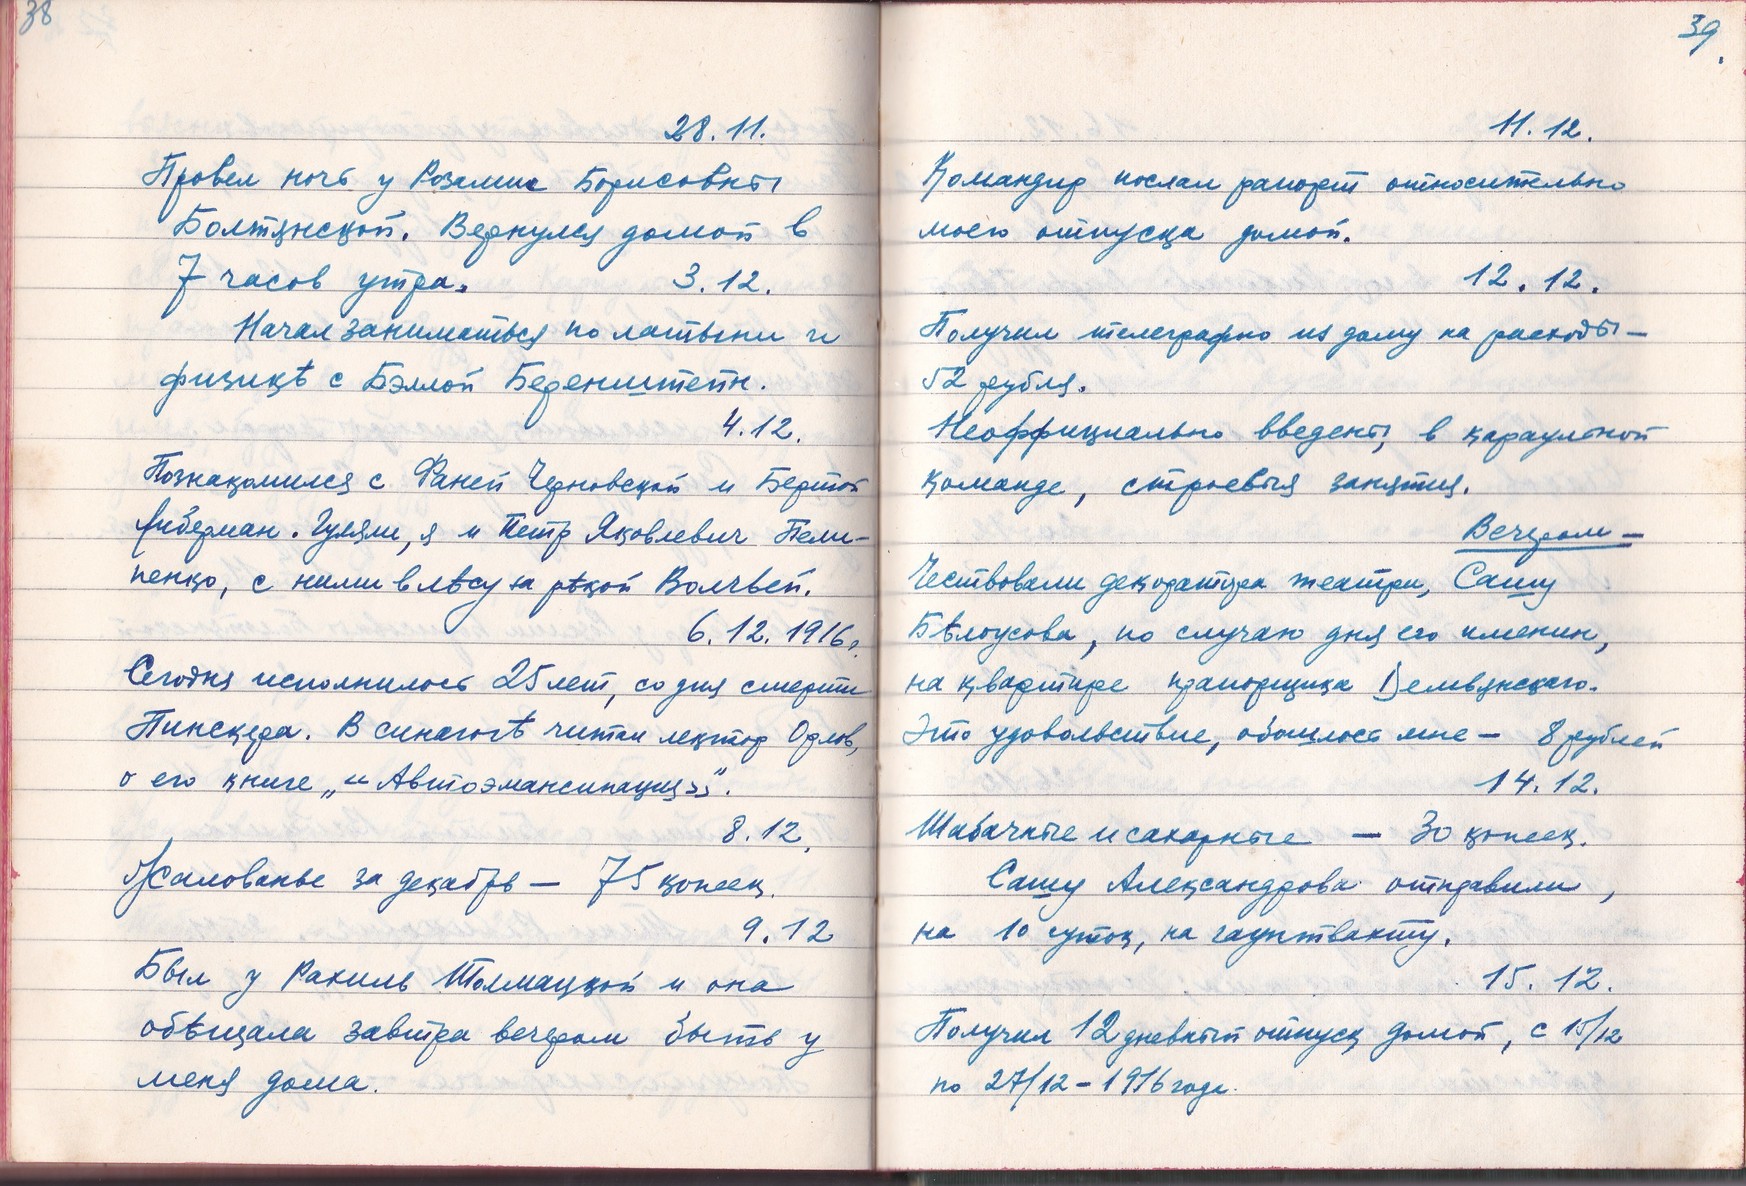 38
28.11.
Провел ночь у Розалии Борисовны
Болтянской. Вернулся домой в
7 часов утра.
3.12.
Начал заниматься по латыни и
физикѣ с Бэллой Беренштейн.
4.12.
Познакомился с Фаней Черновской и Бертой
Либерман. Гуляли, я и Петр Яковлевич Пели-
пенко, с ними в лѣсу за рѣкой Волчьей.
6.12.1916г.
Сегодня исполнилось 25 лет, со дня смерти
Пинскера. В синагогѣ читал лектор Орлов,
о его книге „“Автоэмансипация”“.
8.12.
Жалованье за декабрь — 75 копеек.
9.12
Был у Рахиль Толмацкой и она
обѣщала завтра вечером быть у
меня дома.
39.
11.12.
Командир послал рапорт относительно
моего отпуска домой.
12.12.
Получил телеграфно из дому на расходы —
52 рубля.
Неоффициально введены, в караульной
команде, строевыя занятия.
Вечером —
Чествовали декоратора театра, Сашу
Бѣлоусова, по случаю дня его именин,
на квартире прапорщика Демвянскаго.
Это удовольствие, обошлось мне — 8 рублей
14.12.
Табачные и сахарные — 30 копеек.
Сашу Александрова отправили,
на 10 суток, на гауптвахту.
15.12.
Получил 12 дневный отпуск домой, с 15/12
по 27/12 – 1916 года.